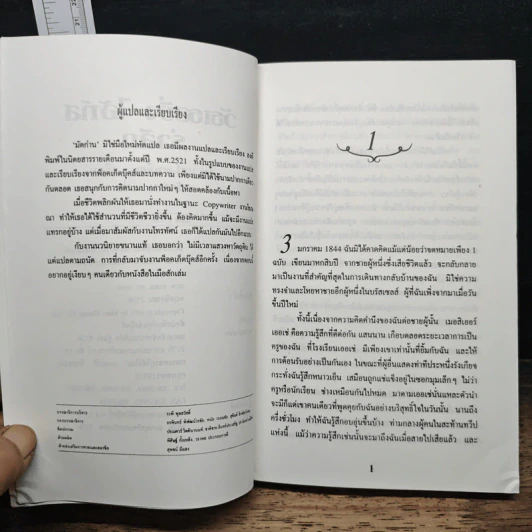 ผู้แปลและเรียบเรียง
"มัดก่าน" มิใช่มือใหม่หัดแปล เธอมีผลงานแปลและเรียบเรียง
พิมพ์ในนิตยสารรายเดือนมาตั้งแต่ปี พ.ศ.2521 ทั้งในรูปของงานแปล
และเรียบเรียงจากพ็อคเก็ตบุ๊คส์และบทความ เพียงแต่มิได้ใช้นามปากกาเดียว
กันตลอด เธอสนุกกับการคิดนามปากกาใหม่ๆ ให้สอดคล้องกับเนื้อหา
เมื่อชีวิตพลิกผันให้เธอมานั่งทำงานในฐานะ Copywriter งานโฆษ
ณา ทำให้เธอได้ใช้สำนวนที่มีชีวิตชีวายิ่งขึ้น ต้องคิดมากขึ้น แม้จะมีงานแปล
แทรกอยู่บ้าง แต่เมื่อมาสัมผัสกับงานโทรทัศน์ เธอก็ได้แปลกันไปอีกแบบ
กับงานนวนิยายขนานแท้ เธอบอกว่า ไม่มีเวลาแสวงหาวัตถุดิบ
แต่แปลตามถนัด การที่กลับมาจับงานพ็อคเก็ตบุ๊คส์อีกครั้ง เนื่องจาก
อยากอยู่เงียบๆ คนเดียวกับหนังสือในมือสักเล่ม
บรรณาธิการบริหาร
กองบรรณาธิการ
ศิลปกรรม
1
3 มกราคม 1844 ฉันมิได้คาดคิดแม้แต่น้อยว่าจดหมายเพียง 1
ฉบับ เขียนมาหกสิบปี จากชายผู้หนึ่งซึ่งเสียชีวิตแล้ว จะกลับกลาย
มาเป็นงานที่สำคัญที่สุดในการเดินทางกลับบ้านของฉัน มิใช่ความ
ทรงจำและโหยหาชายอีกผู้หนึ่งในบรัสเซลส์ ผู้ที่ฉันเพิ่งจากมาเมื่อวัน
ขึ้นปีใหม่
ทั้งนี้เนื่องจากความคิดคำนึงของฉันต่อชายผู้นั้น เมอสิเออร์
เฮเฌ่ คือความรู้สึกที่ดีต่อกัน แสนนาน เกือบตลอดระยะเวลาการเป็น
ครูของฉัน ที่โรงเรียนเฮเฌ่ มีเพียงเขาเท่านั้นที่ยิ้มกับฉัน และให้
การต้อนรับอย่างเป็นกันเอง ในขณะที่ผู้อื่นแสดงท่าทีประหนึ่งรังเกียจ
กระทั่งฉันรู้สึกหนาวเย็น เสมือนถูกแช่แข็งอยู่ในซอกมุมเล็กๆ ไม่ว่า
ครูหรือนักเรียน ช่างเหมือนกันไปหมด มาดามเฮเฌ่นั้นแหละตัวนำ
จะมีก็แต่เขาคนเดียวที่พูดคุยกับฉันอย่างบริสุทธิ์ใจในวันนั้น นานถึง
ครึ่งชั่วโมง ทำให้ฉันรู้สึกอบอุ่นขึ้นบ้าง ท่ามกลางผู้คนในสะท้านทวีป
แห่งนี้ แม้ว่าความรู้สึกเช่นนั้นจะมาถึงฉันเมื่อสายไปเสียแล้ว และ
1